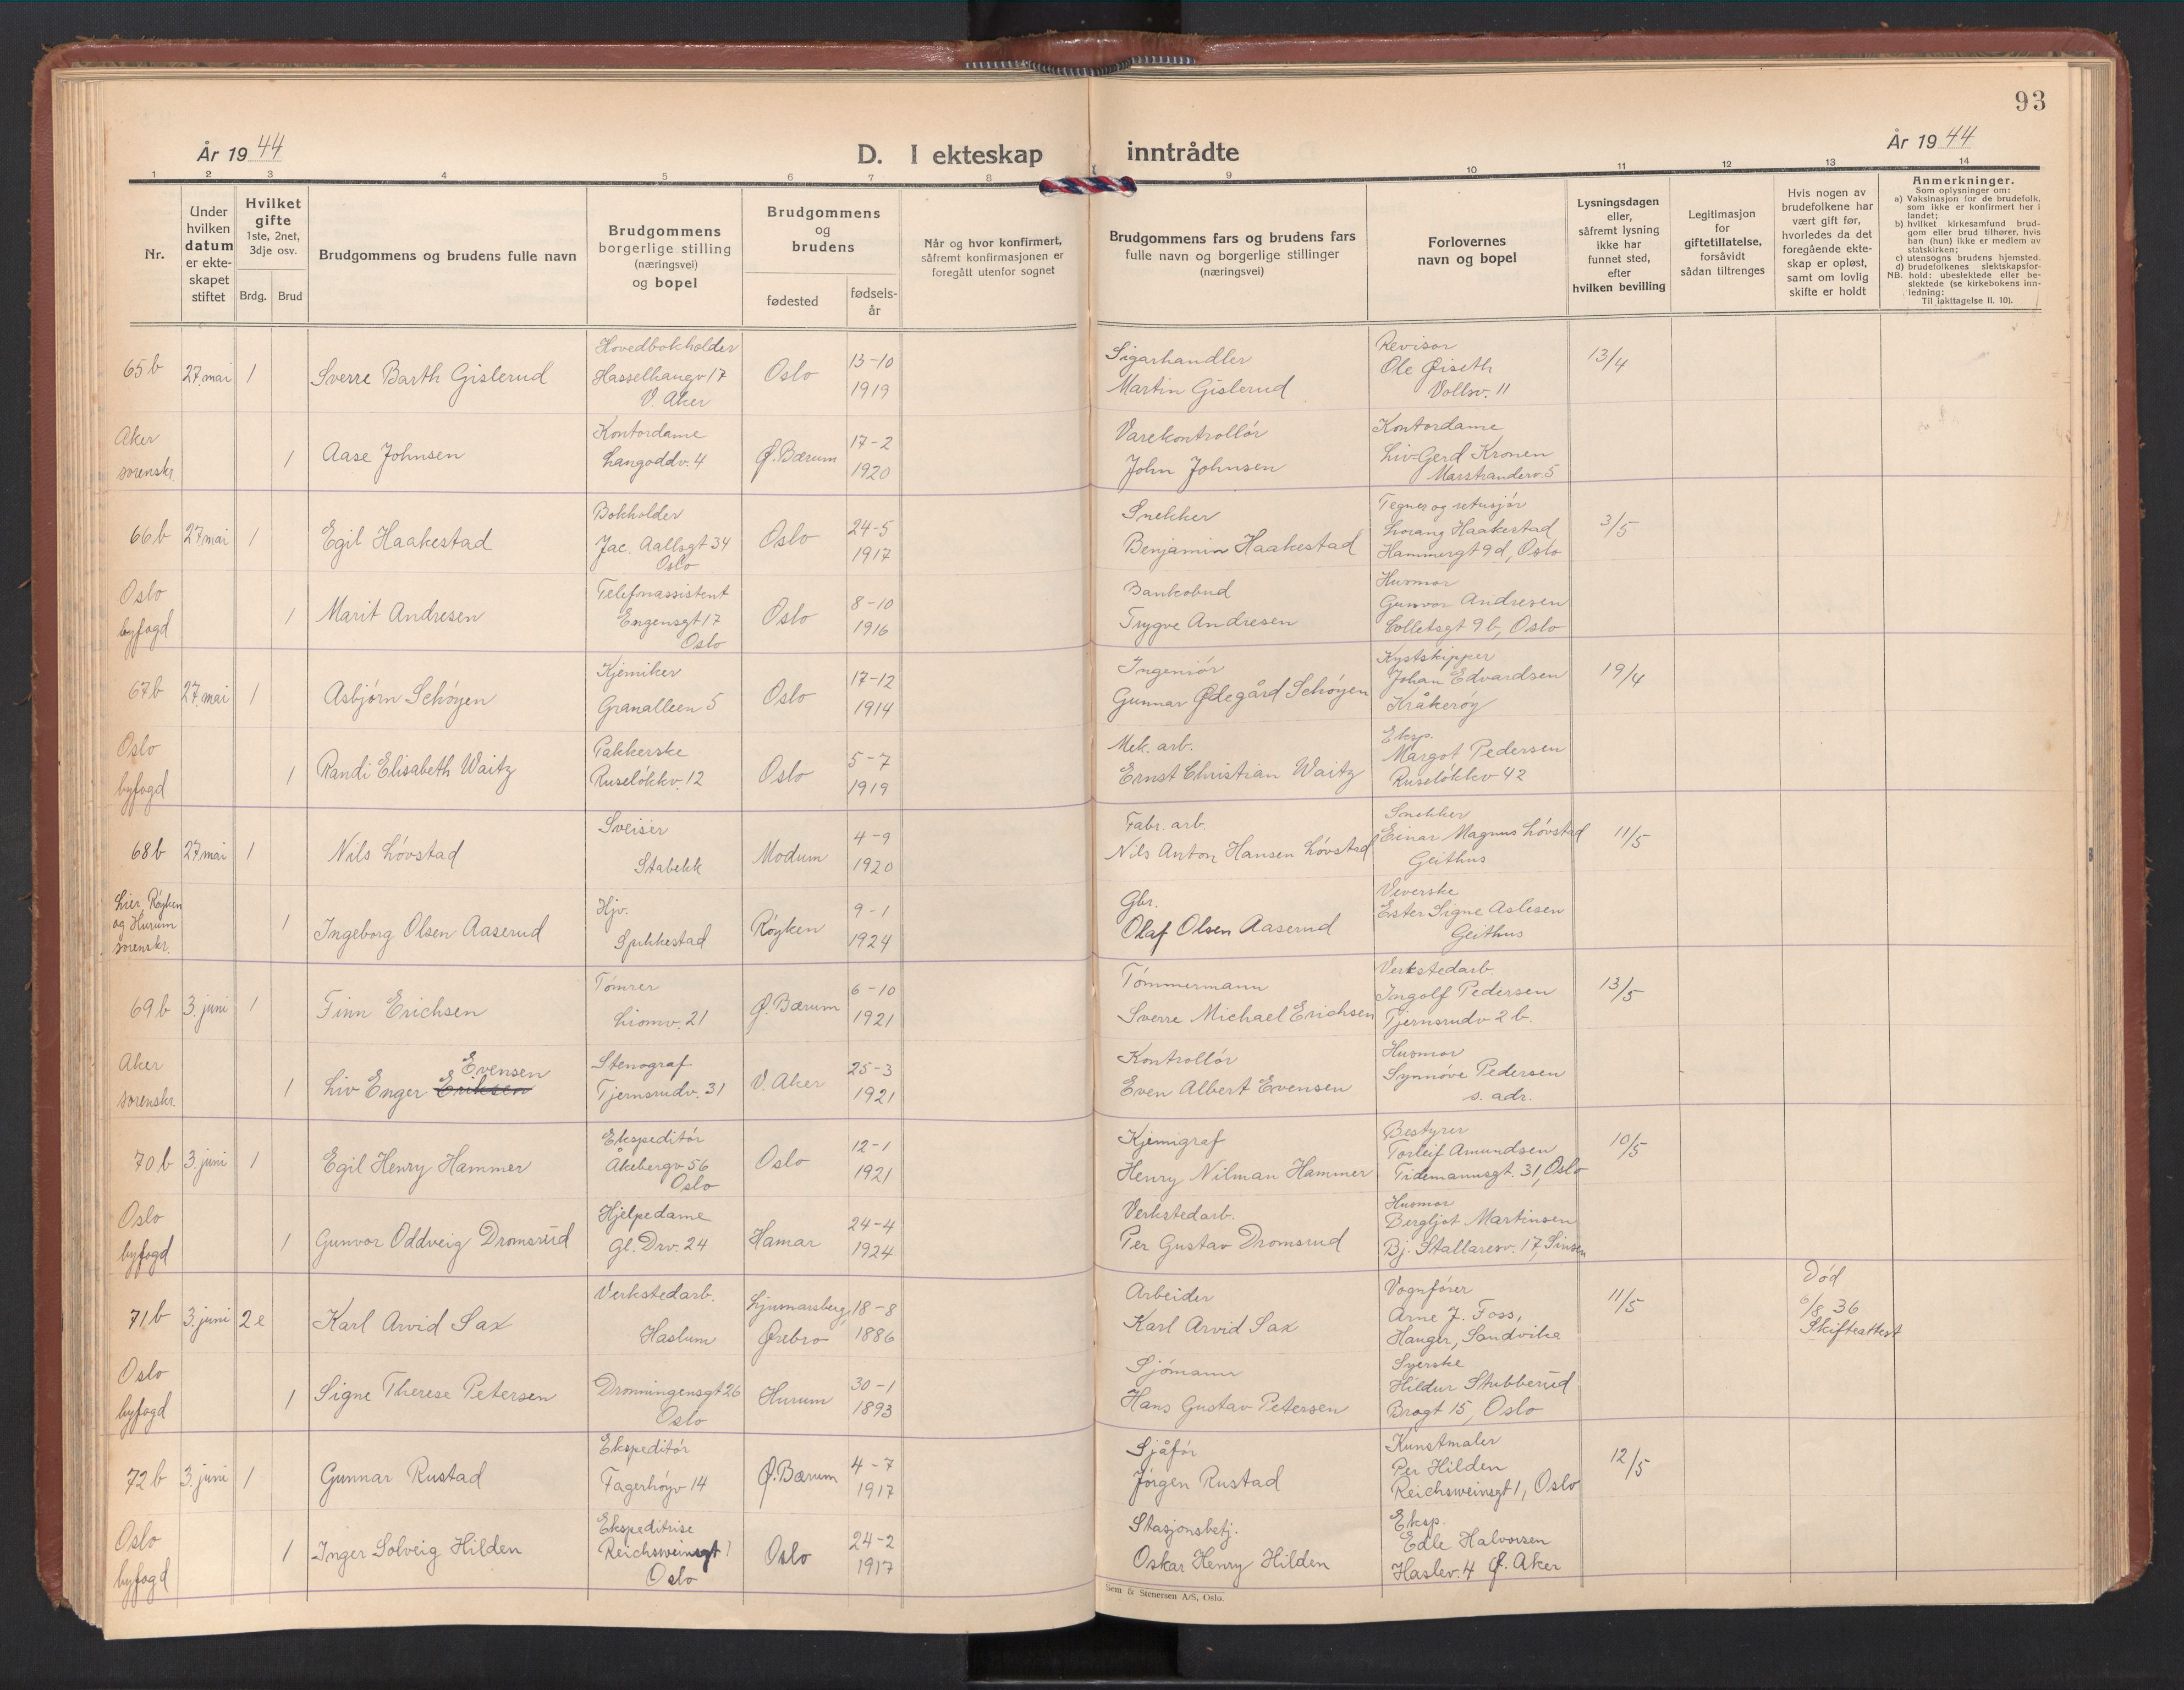 93
År 1944
D. I ekteskap inntrådte
År 1944
1 2 3 4 5 6 7 8 9 10 11 12 13 14
Nr.
Under hvilken datum er ekteskapet stiftet
Hvilket gifte
1ste, 2net, 3dje osv.
Brdg. Brud
Brudgommens og brudens fulle navn
Brudgommens borgerlige stilling (næringsvei) og bopel
Brudgommens og brudens
fødested
fødselsår
Når og hvor konfirmert, såfremt konfirmasjonen er foregått utenfor sognet
Brudgommens fars og brudens fars fulle navn og borgerlige stillinger (næringsvei)
Forlovernes navn og bopel
Lysningsdagen eller, såfremt lysning ikke har funnet sted, efter hvilken bevilling
Legitimasjon for giftetillatelse, forsåvidt sådan tiltrenges
Hvis nogen av brudefolkene har vært gift før, hvorledes da det foregående ekteskap er opløst, samt om lovlig skifte er holdt
Anmerkninger.
Som oplysninger om:
a) Vaksinasjon for de brudefolk, som ikke er konfirmert her i landet;
b) hvilket kirkesamfund brudgom eller brud tilhører, hvis han (hun) ikke er medlem av statskirken;
c) utensogns brudens hjemsted.
d) brudefolkenes slektskapsforhold: ubeslektede eller beslektede (se kirkebokens innledning:
NB.
Til iakttagelse II. 10).
65b 27. mai 1 Sverre Barth Gislerud
Hovedbokholder
Hasselhaugv 17
V. Aker
Oslo
13-10
1919
Sigarhandler
Martin Gislerud
Revisor
Ole Øiseth
Vollsv. 11
13/4
Aker
sorenskr.
1 Aase Johnsen
Kontordame
Langoddv. 4
Ø. Bærum
17-2
1920
Varekontrollør
John Johnsen
Kontordame
Liv-Gerd Kronen
Marstranderv. 5
66b 27 mai 1 Egil Haakestad
Bokholder
Jac. Aallsgt 34
Oslo
Oslo
24-5
1917
Snekker
Benjamin Haakestad
Tegner og retusjør
Lorang Haakestad
Hammergt 9d, Oslo
3/5
Oslo
byfogd
1 Marit Andresen
Telefonassistent
Engensgt 17
Oslo
Oslo
8-10
1916
Bankobud
Trygve Andresen
Husmor
Gunvor Andresen
Colletsgt 9b, Oslo
67b 27. mai 1 Asbjørn Schøyen
Kjemiker
Granalleen 5
Oslo
17-12
1914
Ingeniør
Gunnar Ødegård Schøyen
Kystskipper
Johan Edvardsen
Kråkerøy
19/4
Oslo
byfogd
1 Randi Elisabeth Waitz
Pakkerske
Ruseløkkv. 12
Oslo
5-7
1919
Mek. arb.
Ernst Christian Waitz
Eksp.
Margot Pedersen
Ruseløkkv 42
68b 27. mai 1 Nils Løvstad
Sveiser
Stabekk
Modum
4-9
1920
Fabr. arb.
Nils Anton Hansen Løvstad
Snekker
Einar Magnus Løvstad
Geithus
11/5
Lier, Røyken
og Hurum
sorenskr.
1 Ingeborg Olsen Aaserud
Hjv.
Spikkestad
Røyken
9-1
1924
Gbr.
Olaf Olsen Aaserud
Veverske
Ester Signe Aslesen
Geithus
69b 3. juni 1 Finn Erichsen
Tømrer
Liomv. 21
Ø. Bærum
6-10
1921
Tømmermann
Sverre Michael Erichsen
Verkstedarb.
Ingolf Pedersen
Tjernsrudv 2b.
13/5
Aker
sorenskr.
1 Liv Enger Eriksen Evensen
Stenograf
Tjernsrudv. 31
V. Aker
25-3
1921
Kontrollør
Even Albert Evensen
Husmor
Synnøve Pedersen
s. adr.
70b 3. juni 1 Egil Henry Hammer
Ekspeditør
Åkebergv 56
Oslo
Oslo
12-1
1921
Kjemigraf
Henry Nilman Hammer
Bestyrer
Torleif Amundsen
Tidemannsgt. 31, Oslo
10/5
Oslo
byfogd
1 Gunvor Oddveig Dromsrud
Hjelpedame
Gl. Drv. 24
Hamar
24-4
1924
Verkstedarb.
Per Gustav Dromsrud
Husmor
Bergljot Martinsen
Bj. Stallaresv. 17, Sinsen
71b 3. juni 2e Karl Arvid Sax
Verkstedarb.
Haslum
Ljusnarsberg,
Ørebro
18-8
1886
Arbeider
Karl Arvid Sax
Vognfører
Arne J. Foss,
Hauger, Sandvika
11/5
Død
6/8 36
Skifteattest
Oslo
byfogd
1 Signe Therese Petersen
Dronningensgt 26
Oslo
Hurum
30-1
1893
Sjømann
Hans Gustav Petersen
Syerske
Hildur Stubberud
Brogt 15, Oslo
72b 3. juni 1 Gunnar Rustad
Ekspeditør
Fagerhøyv 14
Ø. Bærum
4-7
1917
Sjåfør
Jørgen Rustad
Kunstmaler
Per Hilden
Reichsweinsgt 1, Oslo
12/5
Oslo
byfogd
1 Inger Solveig Hilden
Ekspeditrise
Reichsweinsgt 1
Oslo
Oslo
24-2
1917
Stasjonsbetj.
Oskar Henry Hilden
Eksp.
Edle Halvorsen
Haslev. 4 Ø. Aker
Sem & Stenersen A/S, Oslo.